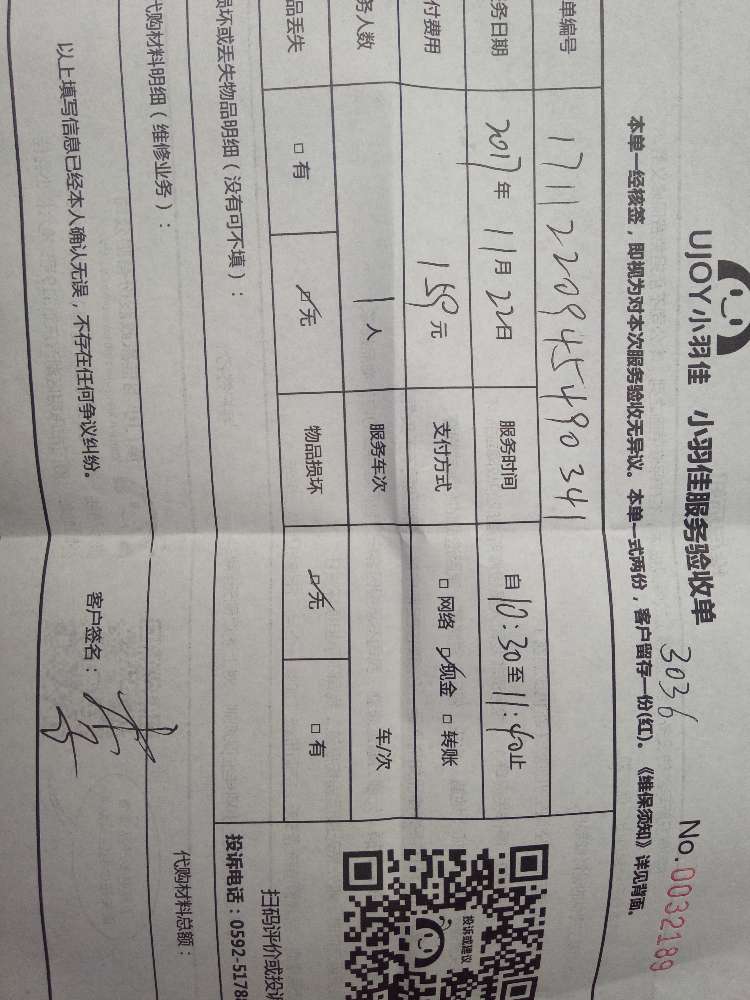 UJOY小羽佳 小羽佳服务验收单
3036
No.0032189
本单一经核签，即视为对本次服务验收无异议。本单一式两份，客户留存一份(红)。《维保须知》详见背面。
单编号 1711220945490341
务日期 2017年11月22日 服务时间 自10:30至11:40止
付费用 159元 支付方式 □网络 ☑现金 □转账
务人数 1人 服务车次 车/次
品丢失 □有 ☑无 物品损坏 ☑无 □有
损坏或丢失物品明细（没有可不填）：
代购材料明细（维修业务）：
代购材料总额：
以上填写信息已经本人确认无误，不存在任何争议纠纷。 客户签名：
投诉或建议
扫码评价或投诉
投诉电话：0592-5178